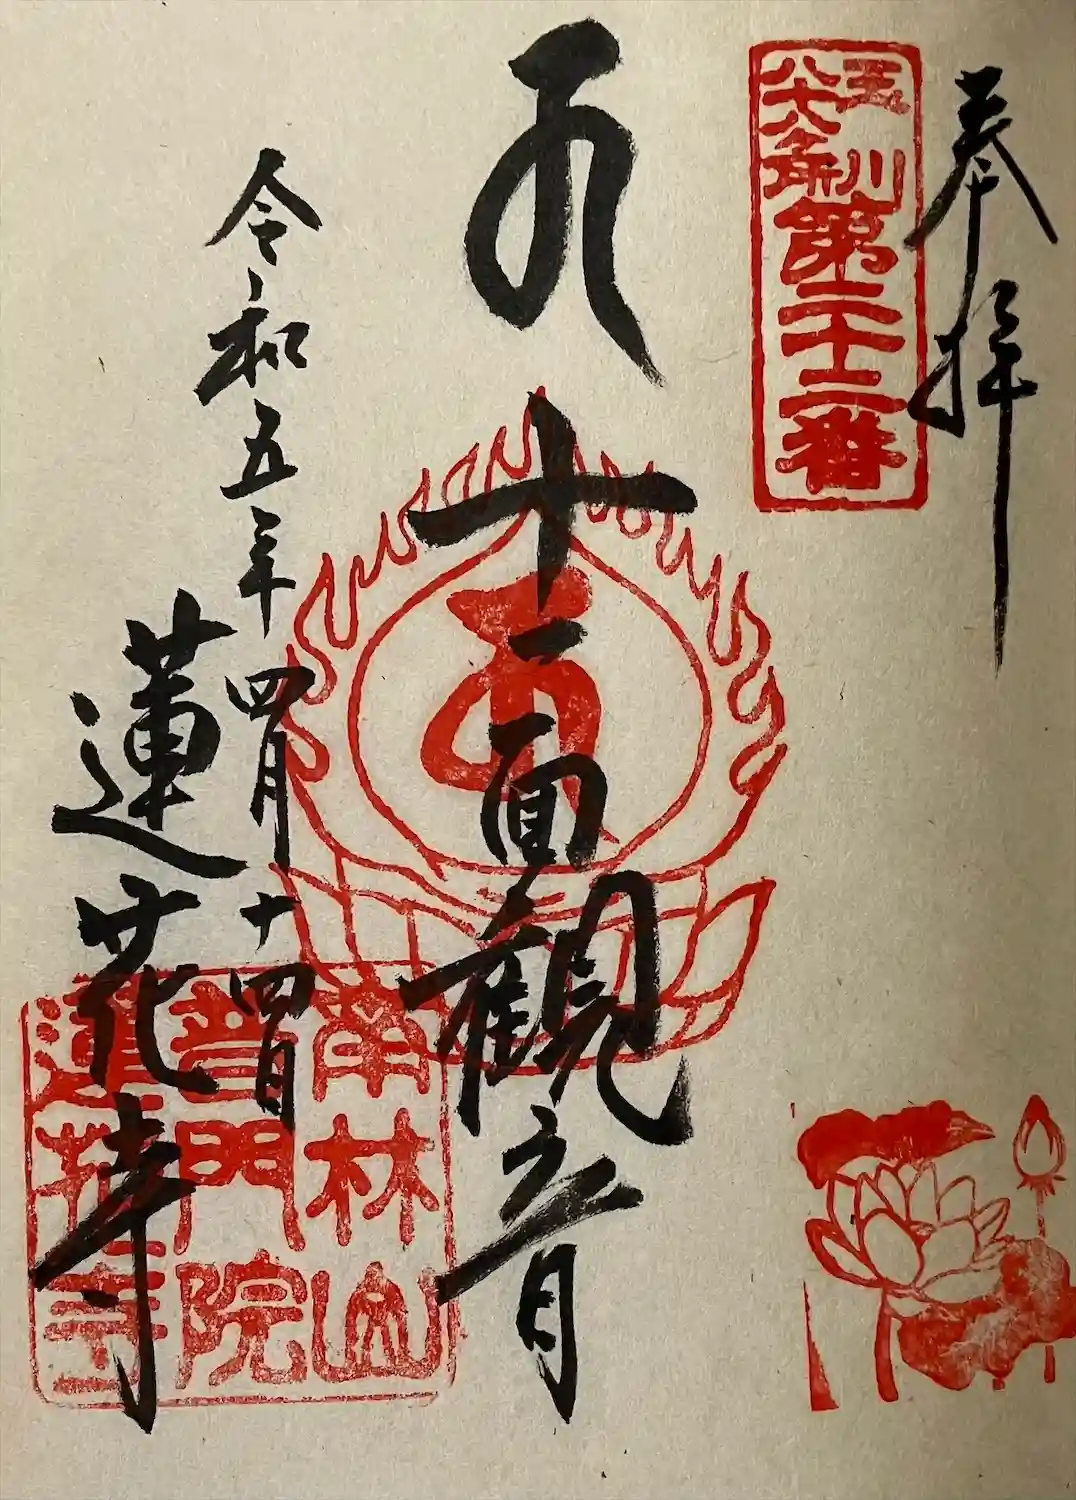 奉拝
玉川
八十八ヶ所
第二十二番
十一面観音
令和五年四月十四日
蓮花寺
南林山
普門院
蓮花寺